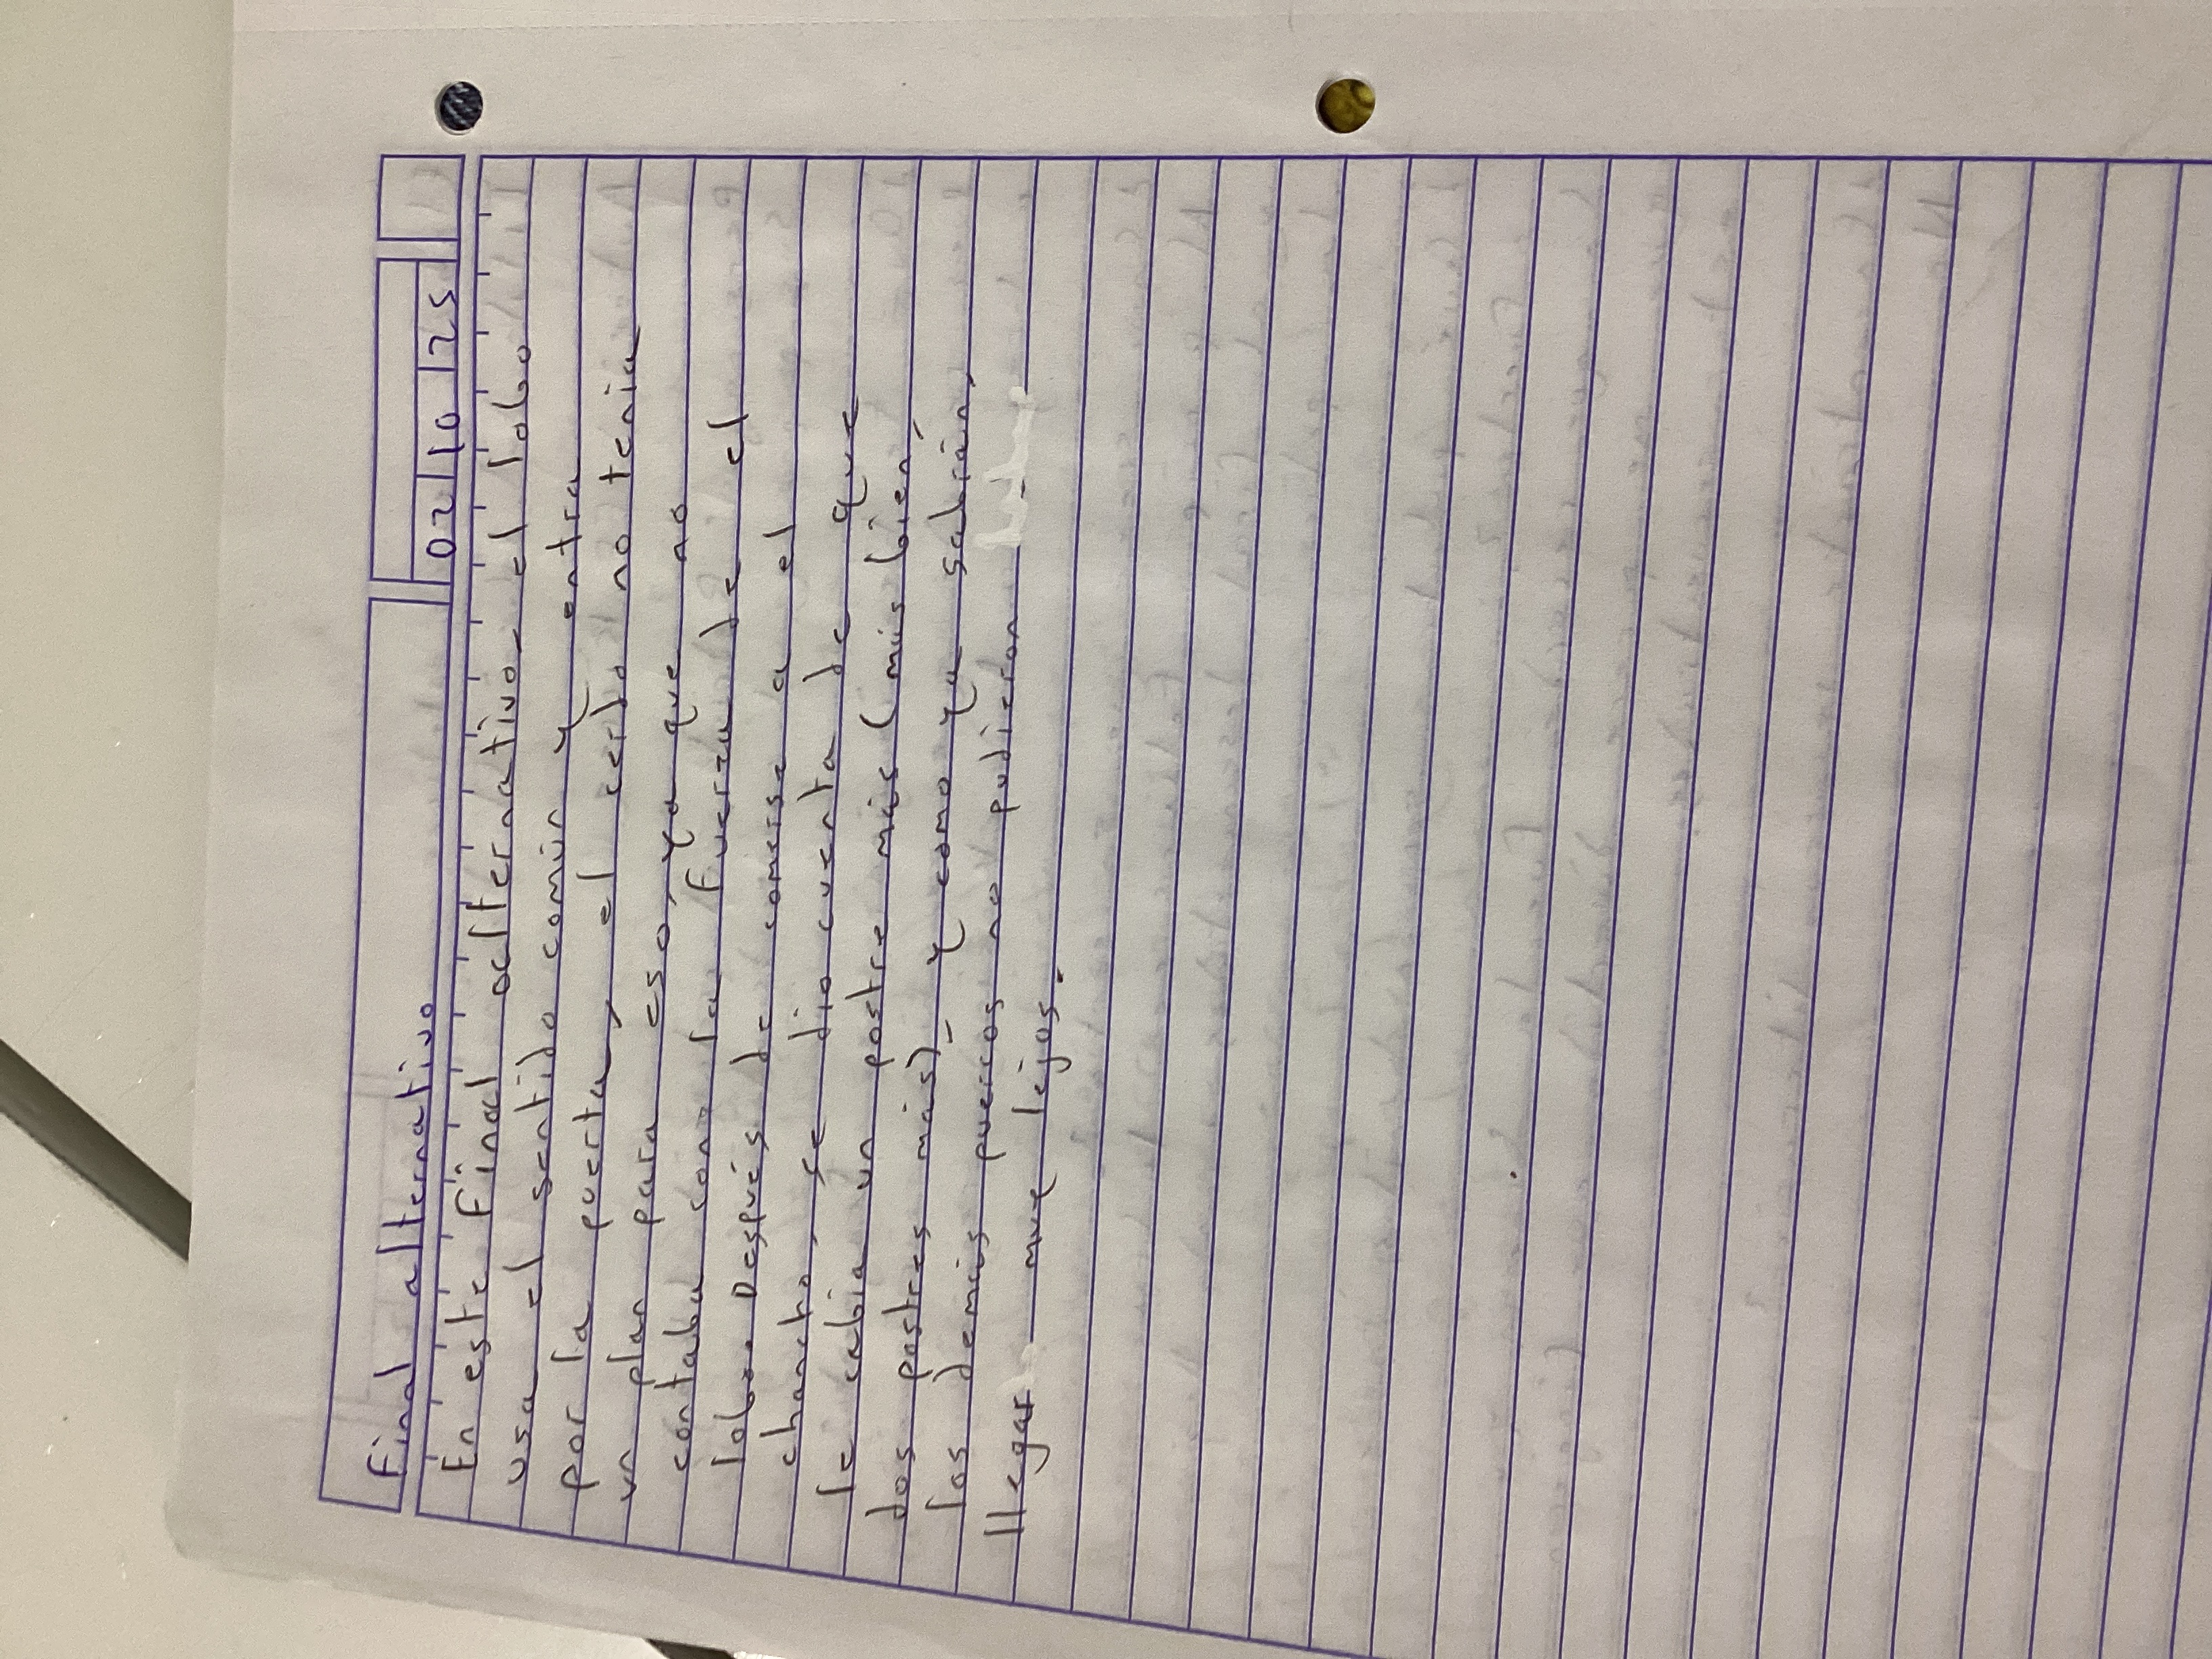 Final alternativo
02 10 25
En este Final alternativo, el lobo
usa el sentido común y entra
por la puerta, el cerdo no tenia
un plan para eso, ya que no
contaba con la fuerza de el
lobo. Después de comerse a el
chancho, se dio cuenta de que
le cabia un postre más (más bien,
dos postres más). Y como ya sabrán,
los demás puercos no pudieron
llegar muy lejos.